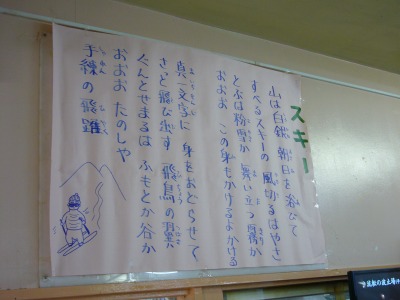 スキー
山は白銀 朝日を浴びて
すべるスキーの 風切るはやさ
とぶは粉雪か 舞い立つ霧か
おおお この身もかけるよかける
真一文字に 身をおどらせて
さっと飛び出す 飛鳥の翼
ぐんとせまるは ふもとか谷か
おおお たのしや
手練の飛躍